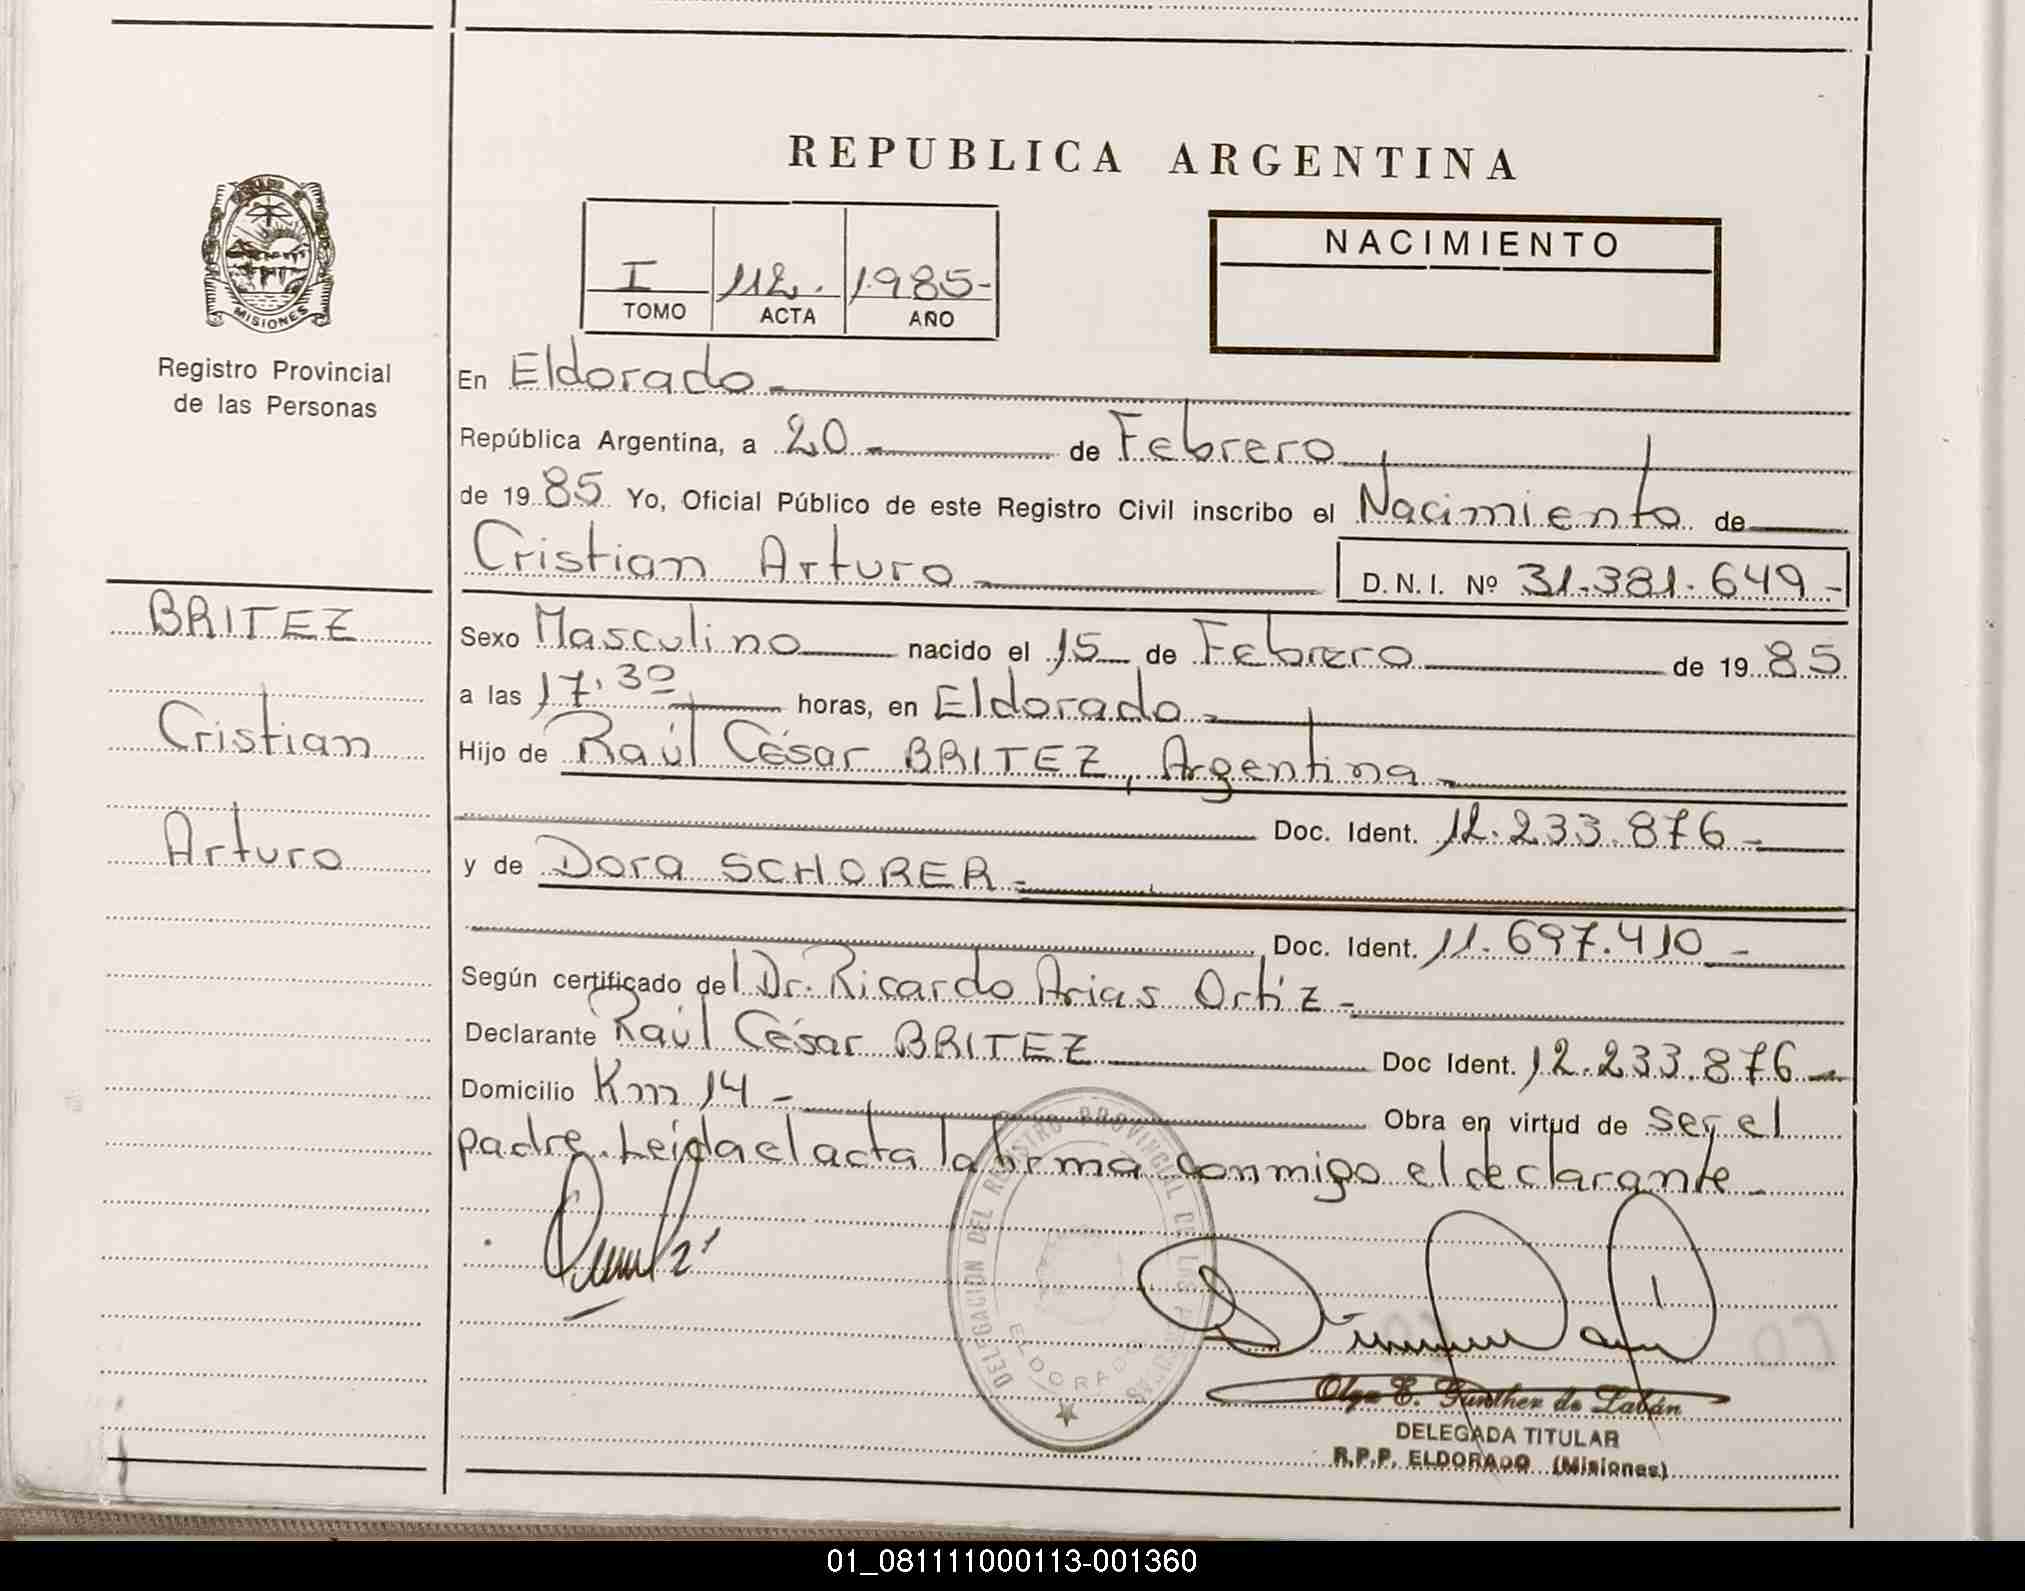 REPUBLICA ARGENTINA
MISIONES
Registro Provincial
de las Personas
I 112. 1985-
TOMO ACTA AÑO
NACIMIENTO
En Eldorado
República Argentina, a 20 de Febrero
de 1985 Yo, Oficial Público de este Registro Civil inscribo el Nacimiento de
Cristian Arturo D.N.I. Nº 31.381.649-
BRITEZ
Cristian
Arturo
Sexo Masculino nacido el 15 de Febrero de 1985
a las 17.30 horas, en Eldorado
Hijo de Raúl César BRITEZ, Argentina
Doc. Ident. 12.233.876
y de Dora SCHORER
Doc. Ident. 11.697.410
Según certificado del Dr. Ricardo Arias Ortíz
Declarante Raúl César BRITEZ Doc Ident. 12.233.876
Domicilio Km 14 Obra en virtud de ser el
padre. Leída el acta la firma conmigo el declarante
DELEGACION DEL REGISTRO PROVINCIAL DE LAS PERSONAS
ELDORADO
Olga E. Gunther de Labán
DELEGADA TITULAR
R.P.P. ELDORADO (Misiones)
01_081111000113-001360